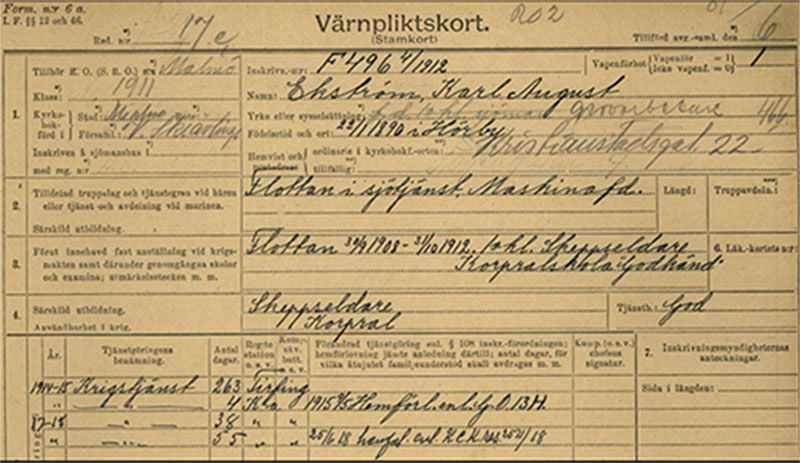 Form. n:r 6 a.
I. F. §§ 12 och 46.
Värnpliktskort.
(Stamkort)
R02
Red. n:r 17 c
Tillförd avg.-saml. den 6
Tillhör R. O. (S. R. O.) n:r Malmö
Klass: 1911
Inskriv.-n:r: F 496 4/1912
Vapenförhet Vapenför = 1
(icke vapenf. = 0) 1
1.
Namn: Ekström, Karl August
Kyrko-
bok-
förd i
Stad: Malmö
Församl.:
Yrke eller sysselsättning grovarbetare
Födelsetid och ort: 1890 i Hörby
Inskriven å sjömanshus i
med reg. n:r
Hemvist och
ordinarie i kyrkobokf.-orten: Kristianstadsgat 22
tillfällig:
2.
Tilldelad truppslag och tjänstegren vid hären
eller tjänst och avdelning vid marinen.
Flottan i sjötjänst, Maskinafd.
Längd:
Truppavdeln.:
Särskild utbildning.
3.
Förut innehavd fast anställning vid krigs-
makten samt därunder genomgångna skolor
och examina; utmärkelsetecken m. m.
Flottan 30/9 1908 - 31/10 1912, Skeppseldare
Korpralskola: Godkänd
6. Läk.-kortets n:r:
4.
Särskild utbildning.
Användbarhet i krig.
Skeppseldare
Korpral
Tjänstb.: God
År.
Tjänstgöringens
benämning.
Antal
dagar.
Reg:te
station
o. s. v.
Komp.
skv.
batt.
o. s. v.
Förändrad tjänstgöring enl. § 108 inskr.-förordningen;
hemförlovning jämte anledning därtill; antal dagar, för
vilka åtnjutet familjeunderstöd skall avdragas m. m.
Komp. (o. s. v.)
chefens
signatur.
7. Inskrivningsmyndigheternas
anteckningar.
Sida i längden:
1914-15 Krigstjänst 263 Tirfing
" 4 Kla 1915 Hemförl. enl. G. O. 13 H.
17-18 " " 38 " "
" " " 55 " " 25/6 18 hemförl. enl. 18